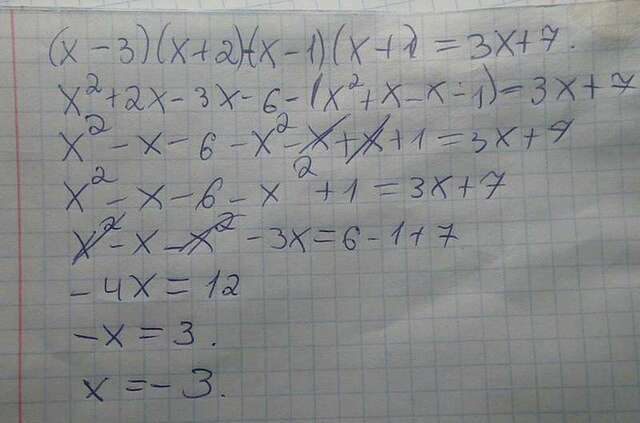 (x - 3)(x + 2) - (x - 1)(x + 1) = 3x + 7.
x² + 2x - 3x - 6 - (x² + x - x - 1) = 3x + 7
x² - x - 6 - x² - x + x + 1 = 3x + 7
x² - x - 6 - x² + 1 = 3x + 7
x² - x - x² - 3x = 6 - 1 + 7
- 4x = 12
- x = 3.
x = - 3.